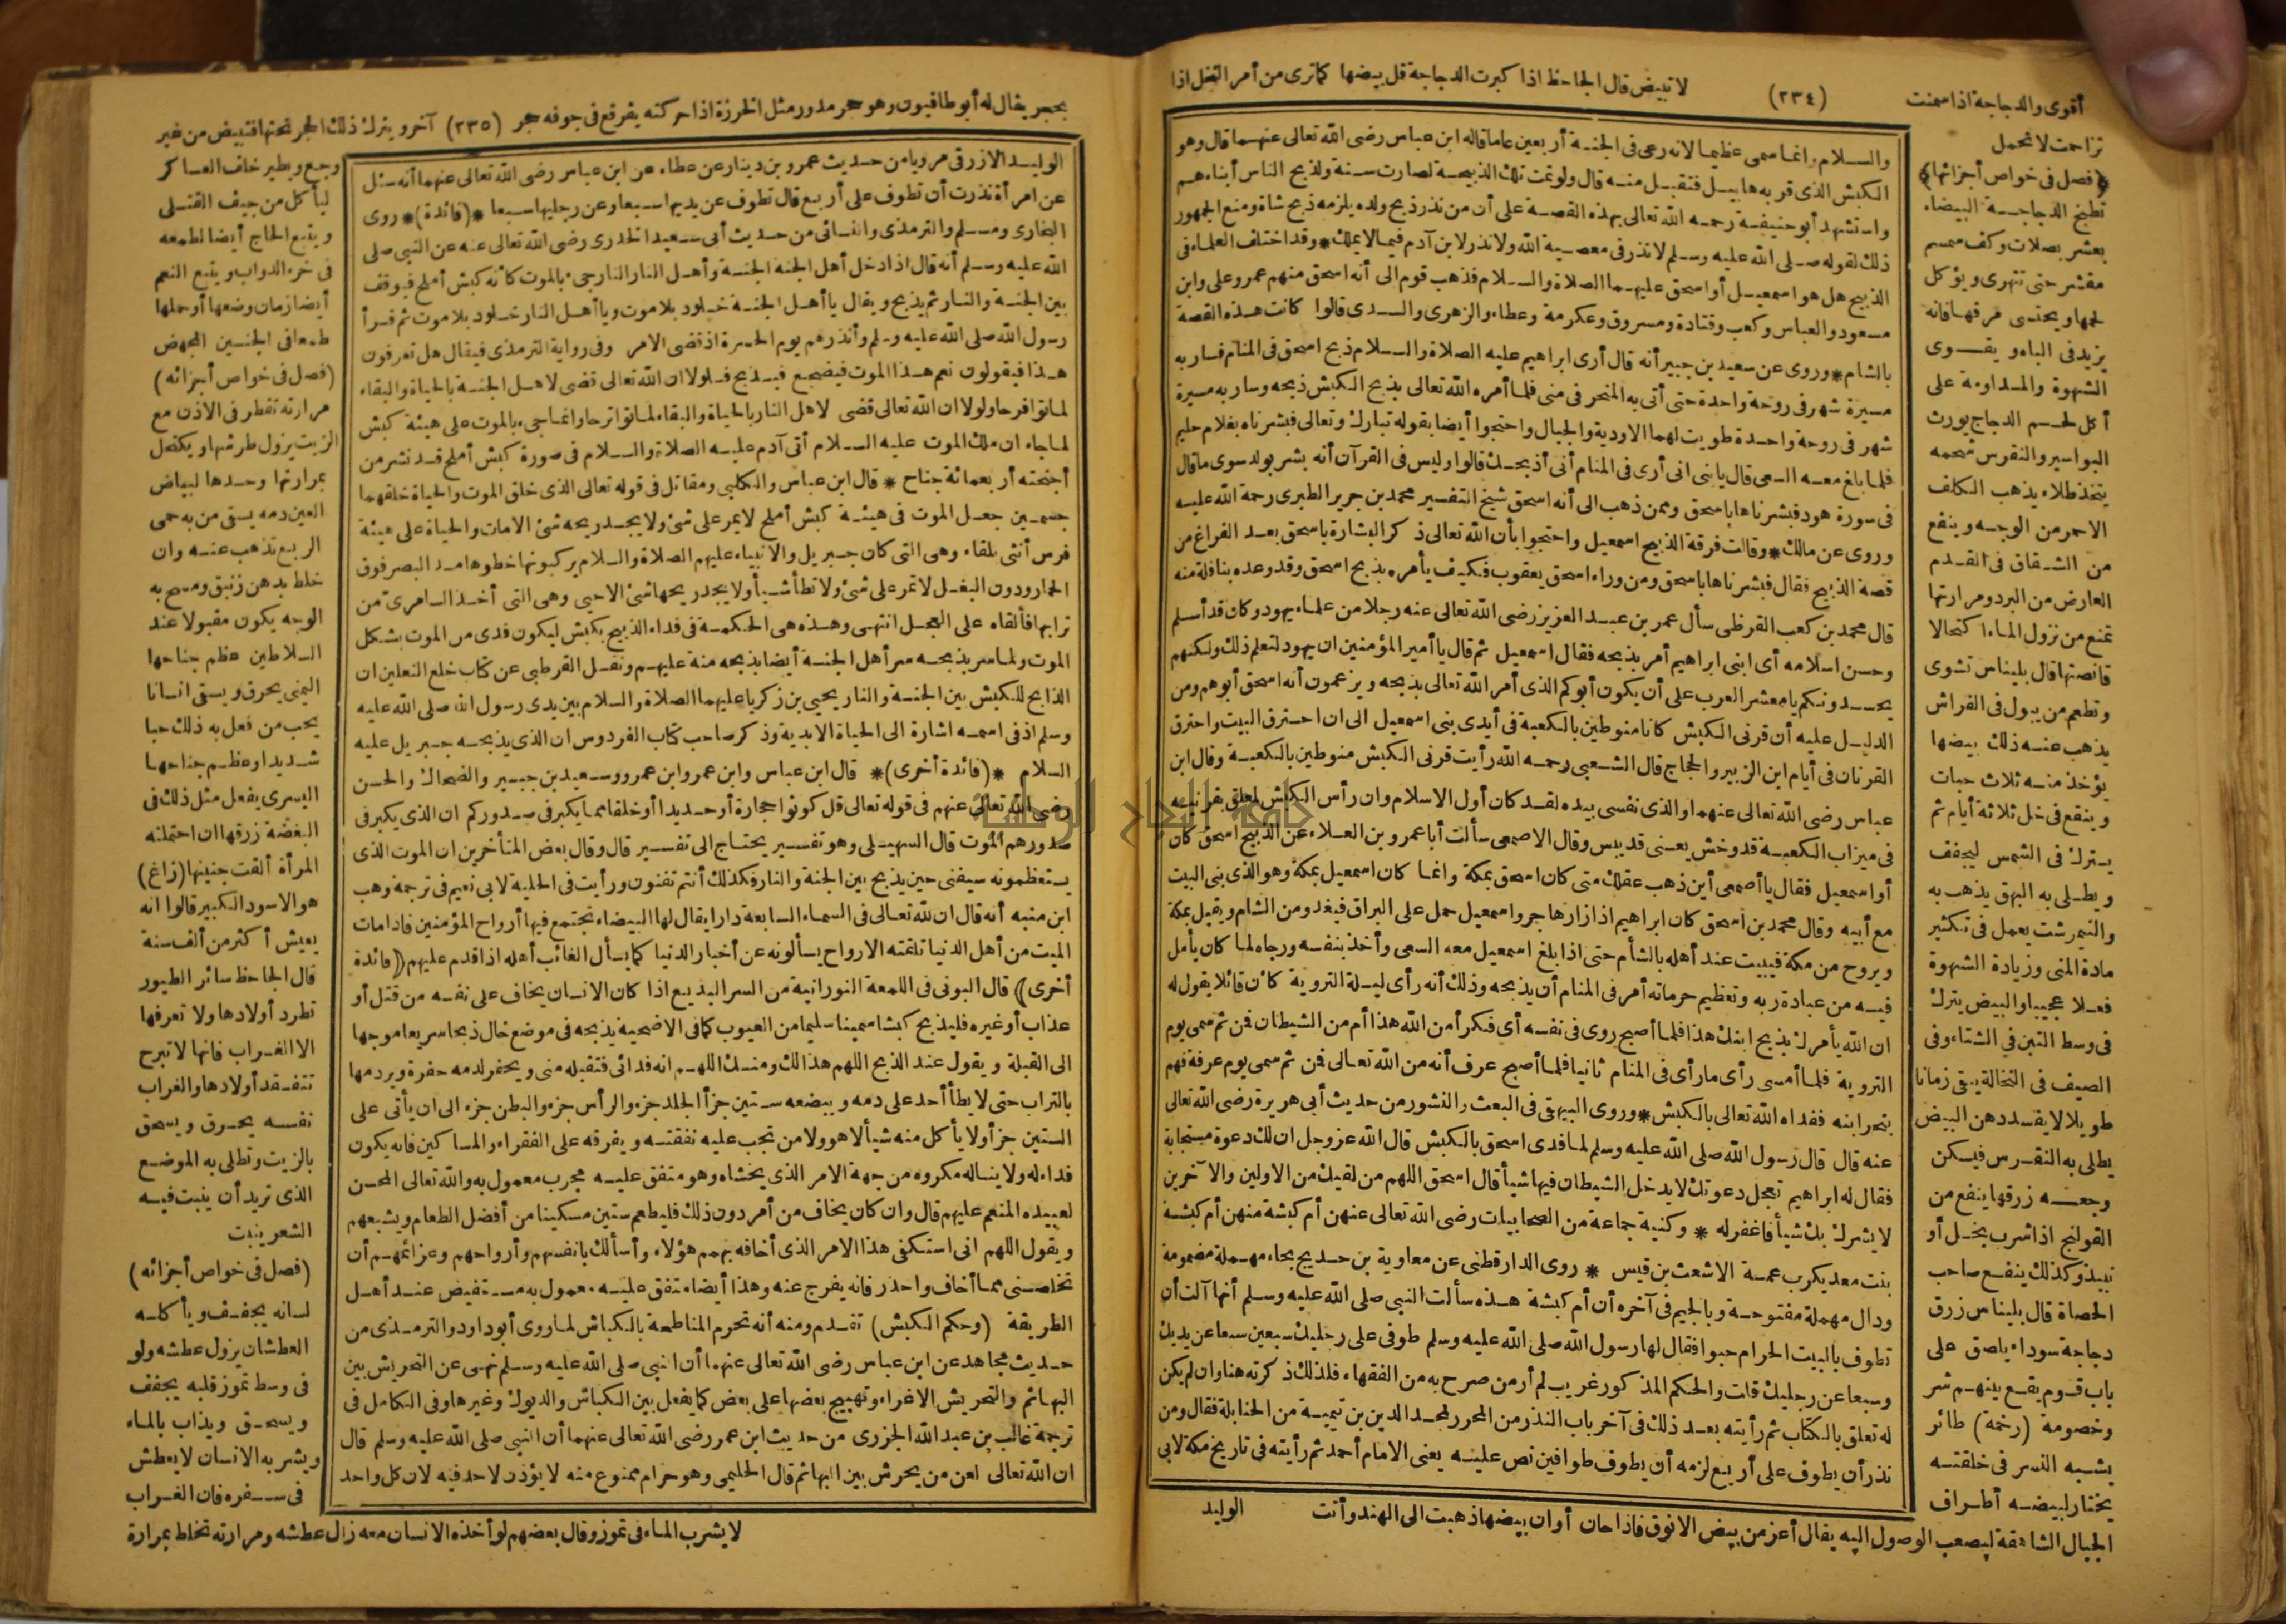 أقوى والدجاجة اذا سمنت (٢٣٤) لا تبيض قال الجاحظ اذا كبرت الدجاجة قل بيضها كما ترى من أمر النخل اذا
تزاحمت لا تحمل
(فصل فى خواص أجزائها)
تطبخ الدجاجة البيضاء
بعشر بصلات وكف سمسم
مقشر حتى تتهرى ويؤكل
لحمها ويحتسى مرقها فانه
يزيد فى الباه ويقوى
الشهوة والمداومة على
أكل لحم الدجاج يورث
البواسير والنقرس شحمه
يتخذ طلاء يذهب الكلف
الاحمر من الوجه وينفع
من الشقاق فى القدم
العارض من البرد ومرارتها
تمنع من نزول الماء اكتحالا
قانصتها قال بليناس تشوى
وتطعم من يبول فى الفراش
يذهب عنه ذلك بيضها
يؤخذ منه ثلاث حبات
وينقع فى خل ثلاثة أيام ثم
يترك فى الشمس ليجفف
ويطلى به البهق يذهب به
والنيمرشت يعمل فى تكثير
مادة المنى وزيادة الشهوة
فعلا عجيبا والبيض يترك
فى وسط التبن فى الشتاء وفى
الصيف فى النخالة يبقى زمانا
طويلا لا يفسد دهن البيض
يطلى به النقرس فيسكن
وجعه زرقها ينفع من
القولنج اذا شرب بخل أو
نبيذ وكذلك ينفع صاحب
الحصاة قال بليناس زرق
دجاجة سوداء يلصق على
باب قوم يقع بينهم شر
وخصومة (رخمة) طائر
يشبه النسر فى خلقته
يختار لبيضه أطراف
الجبال الشاهقة ليصعب الوصول اليه يقال أعز من بيض الانوق فاذا حان أوان بيضها ذهبت الى الهند وأتت
والسلام وانما سمى عظيما لانه رعى فى الجنة أربعين عاما قاله ابن عباس رضى الله تعالى عنهما قال وهو
الكبش الذى قربه هابيل فتقبل منه قال ولو تمت تلك الذبيحة لصارت سنة ولذبح الناس أبناءهم
واستشهد أبو حنيفة رحمه الله تعالى بهذه القصة على أن من نذر ذبح ولده يلزمه ذبح شاة ومنع الجمهور
ذلك لقوله صلى الله عليه وسلم لا نذر فى معصية الله ولا نذر لابن آدم فيما لا يملك * وقد اختلف العلماء فى
الذبيح هل هو اسمعيل أو اسحق عليهما الصلاة والسلام فذهب قوم الى أنه اسحق منهم عمر وعلى وابن
مسعود والعباس وكعب وقتادة ومسروق وعكرمة وعطاء والزهرى والسدى قالوا كانت هذه القصة
بالشام * وروى عن سعيد بن جبير أنه قال أرى ابراهيم عليه الصلاة والسلام ذبح اسحق فى المنام فسار به
مسيرة شهر فى روحة واحدة حتى أتى به المنحر فى منى فلما أمره الله تعالى بذبح الكبش ذبحه وسار به مسيرة
شهر فى روحة واحدة طويت لهما الاودية والجبال واحتجوا أيضا بقوله تبارك وتعالى فبشرناه بغلام حليم
فلما بلغ معه السعى قال يا بنى انى أرى فى المنام أنى أذبحك قالوا وليس فى القرآن أنه بشر بولد سوى ما قال
فى سورة هود فبشرناها باسحق وممن ذهب الى أنه اسحق شيخ التفسير محمد بن جرير الطبرى رحمة الله عليه
وروى عن مالك * وقالت فرقة الذبيح اسمعيل واحتجوا بأن الله تعالى ذكر البشارة باسحق بعد الفراغ من
قصة الذبيح فقال فبشرناها باسحق ومن وراء اسحق يعقوب فكيف يأمره بذبح اسحق وقد وعده بنافلة منه
قال محمد بن كعب القرظى سأل عمر بن عبد العزيز رضى الله تعالى عنه رجلا من علماء يهود وكان قد أسلم
وحسن اسلامه أى ابنى ابراهيم أمر بذبحه فقال اسمعيل ثم قال يا أمير المؤمنين ان يهود لتعلم ذلك ولكنهم
يحسدونكم يا معشر العرب على أن يكون أبوكم الذى أمر الله تعالى بذبحه ويزعمون أنه اسحق أبوهم ومن
الدليل عليه أن قرنى الكبش كانا منوطين بالكعبة فى أيدى بنى اسمعيل الى ان احترق البيت واحترق
القرنان فى أيام ابن الزبير والحجاج قال الشعبى رحمه الله رأيت قرنى الكبش منوطين بالكعبة وقال ابن
عباس رضى الله تعالى عنهما والذى نفسى بيده لقد كان أول الاسلام وان رأس الكبش لمعلق بقرنيه
فى ميزاب الكعبة قد وخش يعنى قد يبس وقال الاصمعى سألت أبا عمرو بن العلاء عن الذبيح اسحق كان
أو اسمعيل فقال يا أصمعى أين ذهب عقلك متى كان اسحق بمكة وانما كان اسمعيل بمكة وهو الذى بنى البيت
مع أبيه وقال محمد بن اسحق كان ابراهيم اذا زار هاجر واسمعيل حمل على البراق فيغدو من الشام ويقيل بمكة
ويروح من مكة فيبيت عند أهله بالشأم حتى اذا بلغ اسمعيل معه السعى وأخذ بنفسه ورجاه لما كان يأمل
فيه من عبادة ربه وتعظيم حرماته أمر فى المنام أن يذبحه وذلك أنه رأى ليلة التروية كأن قائلا يقول له
ان الله يأمرك بذبح ابنك هذا فلما أصبح روى فى نفسه أى فكر أمن الله هذا أم من الشيطان فمن ثم سمى يوم
التروية فلما أمسى رأى ما رأى فى المنام ثانيا فلما أصبح عرف أنه من الله تعالى فمن ثم سمى يوم عرفة فهم
بنحر ابنه ففداه الله تعالى بالكبش * وروى البيهقى فى البعث والنشور من حديث أبى هريرة رضى الله تعالى
عنه قال قال رسول الله صلى الله عليه وسلم لما فدى اسحق بالكبش قال الله عز وجل ان لك دعوة مستجابة
فقال له ابراهيم تعجل دعوتك لا يدخل الشيطان فيها شيأ قال اسحق اللهم من لقيك من الاولين والآخرين
لا يشرك بك شيأ فاغفر له * وكنية جماعة من الصحابيات رضى الله تعالى عنهن أم كبشة منهن أم كبشة
بنت معديكرب عمة الاشعث بن قيس * روى الدارقطنى عن معاوية بن حديج بحاء مهملة مضمومة
ودال مهملة مفتوحة وبالجيم فى آخره أن أم كبشة هذه سألت النبى صلى الله عليه وسلم أنها آلت أن
تطوف بالبيت الحرام حبوا فقال لها رسول الله صلى الله عليه وسلم طوفى على رجليك سبعين سبعا عن يديك
وسبعا عن رجليك قلت والحكم المذكور غريب لم أر من صرح به من الفقهاء فلذلك ذكرته هنا وان لم يكن
له تعلق بالكتاب ثم رأيته بعد ذلك فى آخر باب النذر من المحرر لمجد الدين بن تيمية من الحنابلة فقال ومن
نذر أن يطوف على أربع لزمه أن يطوف طوافين نص عليه يعنى الامام أحمد ثم رأيته فى تاريخ مكة لابى
الوليد
بحجر يقال له أبو طافيون وهو حجر مدور مثل الخرزة اذا حركته يقرقع فى جوفه حجر (٢٣٥) آخر ويترك ذلك الحجر تحتها فتبيض من غير
الوليد الازرقى مرويا من حديث عمرو بن دينار عن عطاء عن ابن عباس رضى الله تعالى عنهما أنه سئل
عن امرأة نذرت أن تطوف على أربع قال تطوف عن يديها سبعا وعن رجليها سبعا *(فائدة)* روى
البخارى ومسلم والترمذى والنسائى من حديث أبى سعيد الخدرى رضى الله تعالى عنه عن النبى صلى
الله عليه وسلم أنه قال اذا دخل أهل الجنة الجنة وأهل النار النار جىء بالموت كأنه كبش أملح فيوقف
بين الجنة والنار ثم يذبح ويقال يا أهل الجنة خلود بلا موت ويا أهل النار خلود بلا موت ثم قرأ
رسول الله صلى الله عليه وسلم وأنذرهم يوم الحسرة اذ قضى الامر وفى رواية الترمذى فيقال هل تعرفون
هذا فيقولون نعم هذا الموت فيضجع فيذبح فلولا ان الله تعالى قضى لاهل الجنة بالحياة والبقاء
لماتوا فرحا ولولا ان الله تعالى قضى لاهل النار بالحياة والبقاء لماتوا ترحا وانما جىء بالموت على هيئة كبش
لما جاء ان ملك الموت عليه السلام أتى آدم عليه الصلاة والسلام فى صورة كبش أملح قد نشر من
أجنحته أربعمائة جناح * قال ابن عباس والكلبى ومقاتل فى قوله تعالى الذى خلق الموت والحياة خلقهما
جسمين جعل الموت فى هيئة كبش أملح لا يمر على شئ ولا يجد ريحه شئ الا مات والحياة على هيئة
فرس أنثى بلقاء وهى التى كان جبريل والانبياء عليهم الصلاة والسلام يركبونها خطوها مد البصر فوق
الحمار ودون البغل لا تمر على شئ ولا تطأ شيأ ولا يجد ريحها شئ الا حيى وهى التى أخذ السامرى من
ترابها فألقاه على العجل انتهى وهذه هى الحكمة فى فداء الذبيح بكبش ليكون فدى من الموت بشكل
الموت ولما سر بذبحه سر أهل الجنة أيضا بذبحه منة عليهم ونقل القرطبى عن كتاب خلع النعلين ان
الذابح للكبش بين الجنة والنار يحيى بن زكريا عليهما الصلاة والسلام بين يدى رسول الله صلى الله عليه
وسلم اذ فى اسمه اشارة الى الحياة الابدية وذكر صاحب كتاب الفردوس ان الذى يذبحه جبريل عليه
السلام *(فائدة أخرى)* قال ابن عباس وابن عمر وابن عمرو وسعيد بن جبير والضحاك والحسن
رضى الله تعالى عنهم فى قوله تعالى قل كونوا حجارة أو حديدا أو خلقا مما يكبر فى صدوركم ان الذى يكبر فى
صدورهم الموت قال السهيلى وهو تفسير يحتاج الى تفسير قال وقال بعض المتأخرين ان الموت الذى
يستعظمونه سيفنى حين يذبح بين الجنة والنار فكذلك أنتم تفنون ورأيت فى الحلية لابى نعيم فى ترجمة وهب
ابن منبه أنه قال ان لله تعالى فى السماء السابعة دارا يقال لها البيضاء تجتمع فيها أرواح المؤمنين فاذا مات
الميت من أهل الدنيا تلقته الارواح يسألونه عن أخبار الدنيا كما يسأل الغائب أهله اذا قدم عليهم (فائدة
أخرى) قال البونى فى اللمعة النورانية من السر البديع اذا كان الانسان يخاف على نفسه من قتل أو
عذاب أو غيره فليذبح كبشا سمينا سليما من العيوب كما فى الاضحية يذبحه فى موضع خال ذبحا سريعا موجها
الى القبلة ويقول عند الذبح اللهم هذا لك ومنك اللهم انه فدائى فتقبله منى ويحفر لدمه حفرة ويردمها
بالتراب حتى لا يطأ أحد على دمه ويبضعه ستين جزأ الجلد جزء والرأس جزء والبطن جزء الى ان يأتى على
الستين جزأ ولا يأكل منه شيأ لا هو ولا من تجب عليه نفقته ويفرقه على الفقراء والمساكين فانه يكون
فداء له ولا يناله مكروه من جهة الامر الذى يخشاه وهو متفق عليه مجرب معمول به والله تعالى المحسن
لعبيده المنعم عليهم قال وان كان يخاف من أمر دون ذلك فليطعم ستين مسكينا من أفضل الطعام ويشبعهم
ويقول اللهم انى استكفى هذا الامر الذى أخافه بهمم هؤلاء وأسألك بانفسهم وأرواحهم وعزائمهم أن
تخلصنى مما أخاف واحذر فانه يفرج عنه وهذا أيضا متفق عليه معمول به مستفيض عند أهل
الطريقة (وحكم الكبش) تقدم ومنه أنه تحرم المناطحة بالكباش لما روى أبو داود والترمذى من
حديث مجاهد عن ابن عباس رضى الله تعالى عنهما أن النبى صلى الله عليه وسلم نهى عن التحريش بين
البهائم والتحريش الاغراء وتهييج بعضها على بعض كما يفعل بين الكباش والديوك وغيرها وفى الكامل فى
ترجمة غالب بن عبد الله الجزرى من حديث ابن عمر رضى الله تعالى عنهما أن النبى صلى الله عليه وسلم قال
ان الله تعالى لعن من يحرش بين البهائم قال الحليمى وهو حرام ممنوع منه لا يؤذن لاحد فيه لان كل واحد
وجع ويطير خلف العساكر
ليأكل من جيف القتلى
ويتبع الحاج أيضا لطمعه
فى خرء الدواب ويتبع النعم
أيضا زمان وضعها أو حملها
طمعا فى الجنين المجهض
(فصل فى خواص أجزائه)
مرارته تقطر فى الاذن مع
الزيت يزول طرشها ويكتحل
بمرارتها وحدها لبياض
العين دمه يسقى من به حمى
الربع تذهب عنه وان
خلط بدهن زنبق ومسح به
الوجه يكون مقبولا عند
السلاطين عظم جناحها
اليمنى يحرق ويسقى انسانا
يحب من فعل به ذلك حبا
شديدا وعظم جناحها
اليسرى يفعل مثل ذلك فى
البغضة زرقها ان احتملته
المرأة ألقت جنينها (زاغ)
هو الاسود الكبير قالوا انه
يعيش أكثر من ألف سنة
قال الجاحظ سائر الطيور
تطرد أولادها ولا تعرفها
الا الغراب فانها لا تبرح
تتفقد أولادها والغراب
نفسه يحرق ويسحق
بالزيت وتطلى به الموضع
الذى تريد أن ينبت فيه
الشعر ينبت
(فصل فى خواص أجزائه)
لسانه يجفف ويأكله
العطشان يزول عطشه ولو
فى وسط تموز قلبه يجفف
ويسحق ويذاب بالماء
ويشربه الانسان لا يعطش
فى سفره فان الغراب
لا يشرب الماء فى تموز وقال بعضهم لو أخذه الانسان معه زال عطشه ومرارته تخلط بمرارة
جامعة النجاح الوطنية